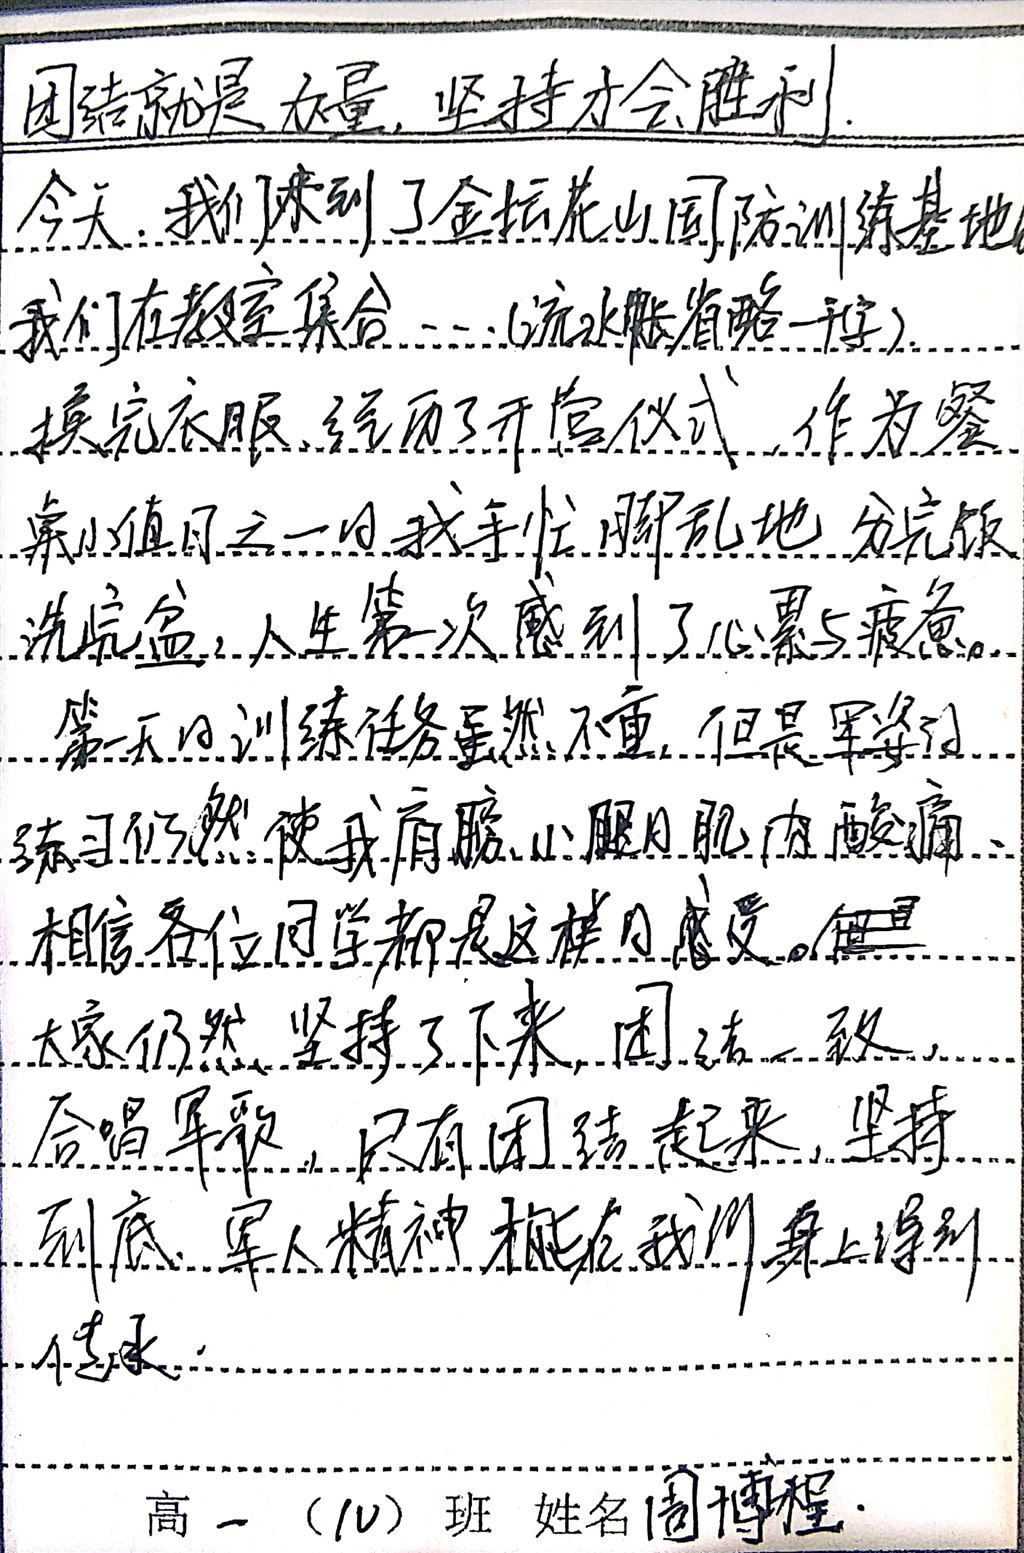 团结就是力量,坚持才会胜利.
今天.我们来到了金坛花山国防训练基地
我们在教室集合....(流水账省略一千字).
换完衣服、经历了开营仪式,作为餐
桌小值日之一的我手忙脚乱地分完饭
洗完盆,人生第一次感到了心累与疲惫。
第一天的训练任务虽然不重,但是军姿的
练习仍然使我肩膀、小腿的肌肉酸痛、
相信各位同学都是这样的感受。但是
大家仍然坚持了下来,团结一致,
合唱军歌,只有团结起来,坚持
到底、军人精神才能在我们身上得到
传承.
高一(10)班 姓名周博程.